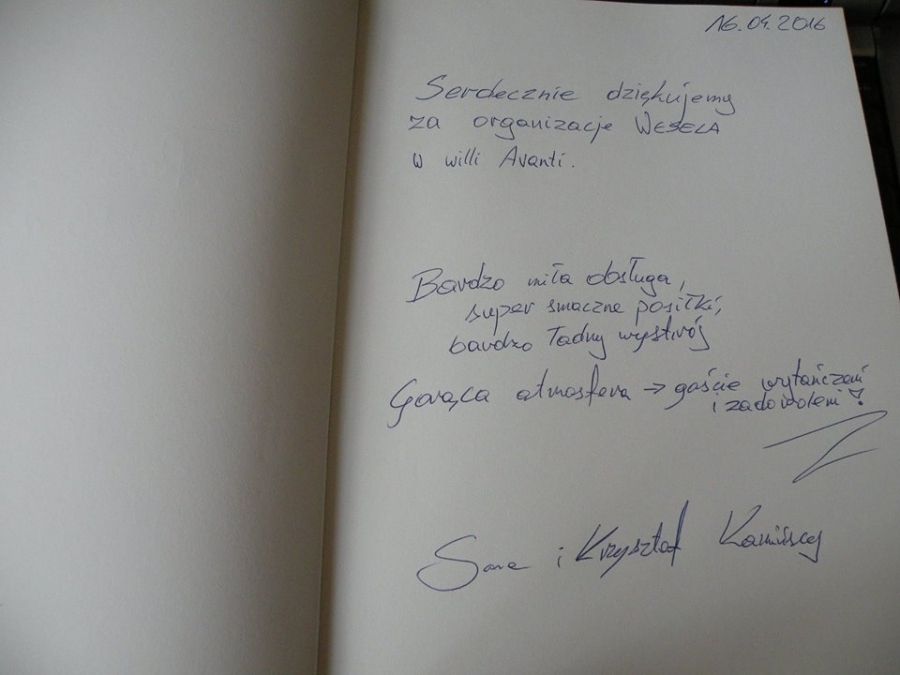 16.04.2016
Serdecznie dziękujemy
za organizacje WESELA
w willi Avanti.
Bardzo miła obsługa,
super smaczne posiłki,
bardzo ładny wystrój
Gorąca atmosfera → goście wytańczeni
i zadowoleni!
Sara i Krzysztof Kamińscy